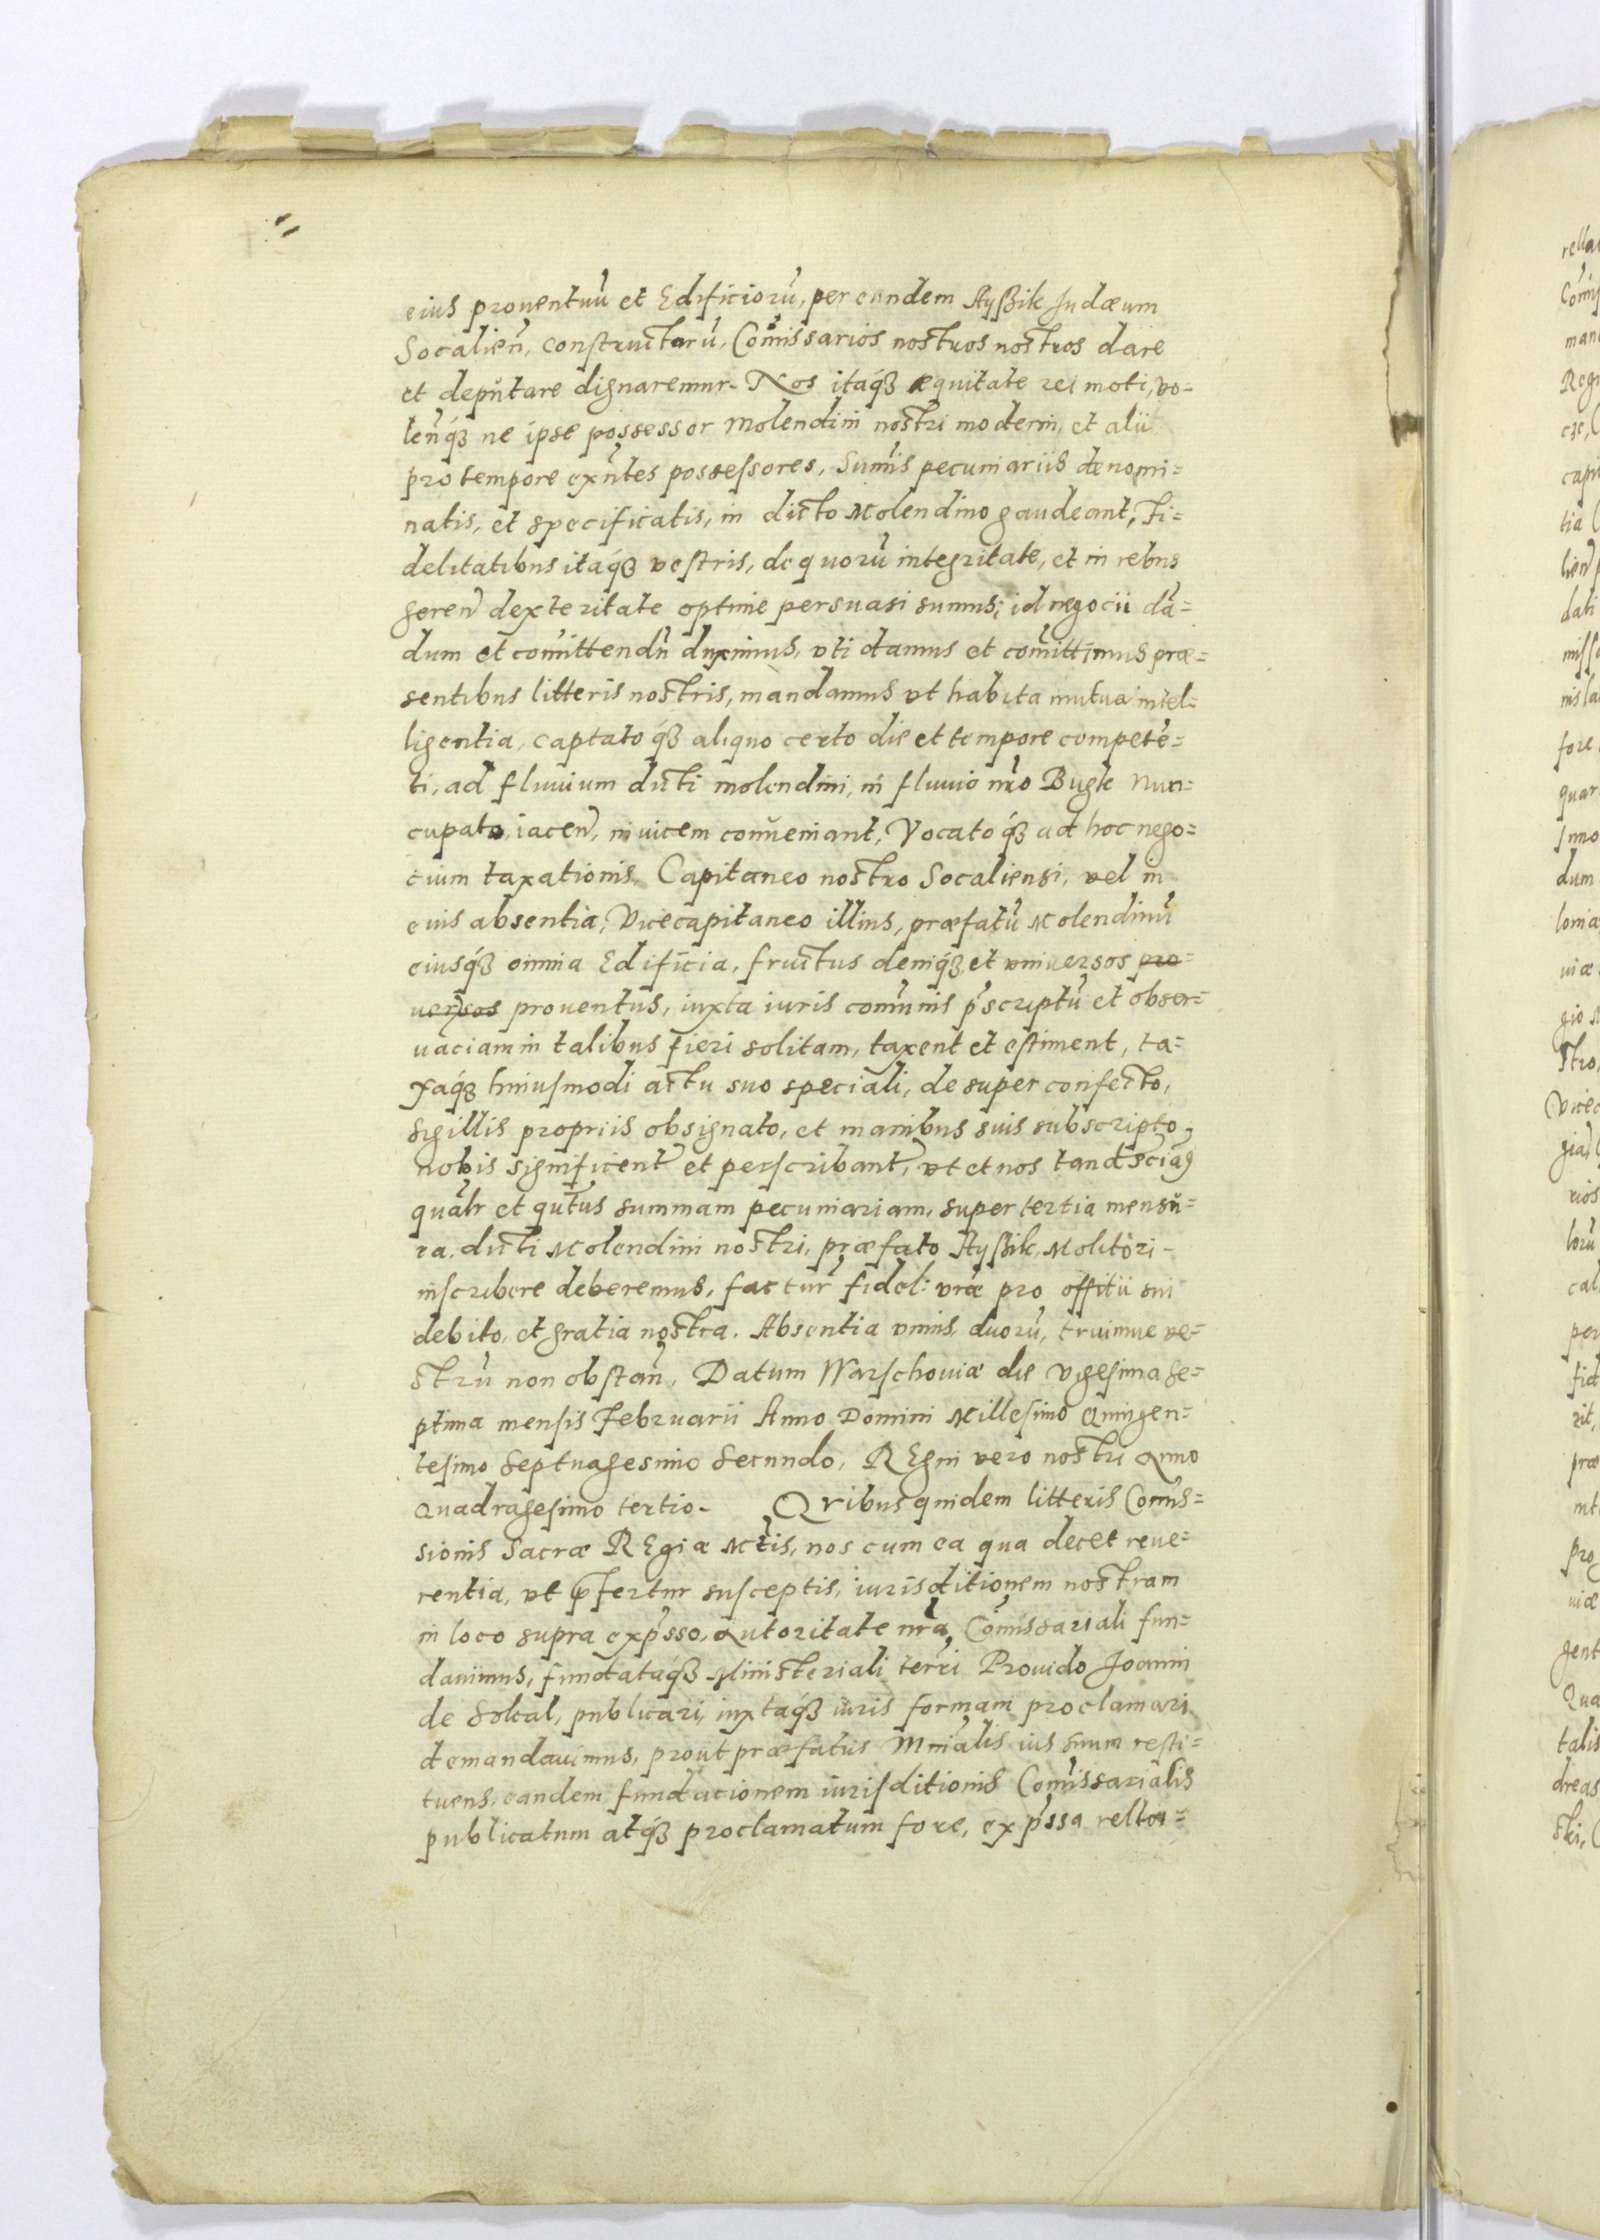 eius prouentuū et Edificiorū, per eundem Ayßik Judæum
Socalien̄, constructarū, Com̄issarios nostros nostros dare
et deputare dignaremur. Nos itaq́ꝫ æquitate rei moti, vo-
len̄q́ꝫ ne ipse possessor molendini nostri moderni, et alii
pro tempore exn̄tes possessores, Sum̄is pecuniariis denomi=
natis, et specificatis, in dicto Molendino gaudeant, Fi=
delitatibus itaq́ꝫ vestris, de quorū integritate, et in rebus
geren̄ dexteritate optime persuasi sumus, id negocii dā=
dum et com̄ittendū duximus, vti damus et com̄ittimus præ=
sentibus litteris nostris, mandamus vt habita mutua intel=
ligentia, captatoq́ꝫ aliquo certo die et tempore competē=
ti, ad fluuium dicti molendini, in fluuio nr̄o Bugk Nun=
cupato, iacen̄, inuicem conueniant, Vocatoq́ꝫ ad hoc nego=
cium taxationis, Capitaneo nostro Socaliensi, vel in
euis absentia, Vicecapitaneo illius, præfatū Molendinū
eiusq́ꝫ omnia Edificia, fructus deniq́ꝫ et vniuersos pro=
uersos prouentus, iuxta iuris com̄unis p̄scriptū et obser=
uaciam in talibus fieri solitam, taxent et estiment, ta=
xaq́ꝫ huiusmodi actu suo speciali, de super confecto,
Sigillis propriis obsignato, et manibus suis subscripto,
nobis significent̄ et perscribant̄, vt et nos tand sciamꝰ
qualr̄ et qutn̄us summam pecuniariam, super tertia mensu=
ra, dicti Molendini nostri, præfato Ayßik, Molitori-
inscribere deberemus, factur̄ fidel: vr̄æ pro offitii sui
debito, et gratia nostra. Absentia vnius, duorū, triuimue ve=
strū non obstan̄. Datum Warschouiæ die Vigesima Se=
ptima mensis Februarii Anno Domini Millesimo Quingen=
tesimo Septuagesimo Secundo, REgni vero nostri Anno
Quadragesimo tertio. Qribus quidem litteris Com̄is=
sionis Sacræ REgiæ Mt̄is, nos cum ea qua decet reue=
rentia, vt p̄fertur susceptis, iurisditionem nostram
in loco supra exp̄sso, Autoritate nr̄a, Com̄issariali fun=
dauimus, fundataq́ꝫ Ministeriali terr̄i Prouido Joanni
de Sokal, publicari, iuxtaq́ꝫ iuris formam proclamari
demandauimus, prout præfatus Mni̅alis ius suum resti=
tuens, eandem fundacionem iurisditionis Com̄issarialis
publicatum atq́ꝫ proclamatum fore, exp̄ssa rella=